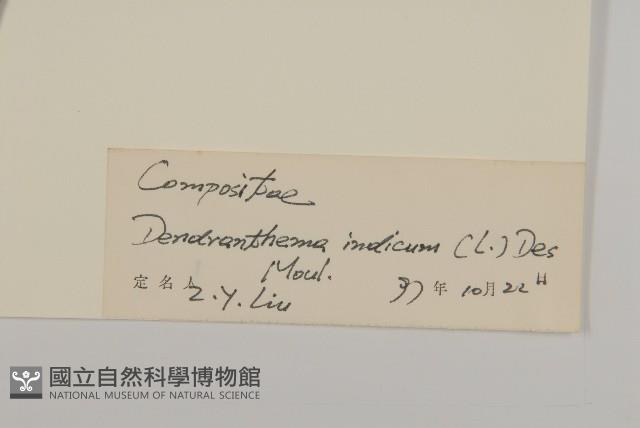 Compositae
Dendranthema indicum (L.) Des
Moul.
定名人 Z.Y. Liu 97年10月22日
國立自然科學博物館
NATIONAL MUSEUM OF NATURAL SCIENCE